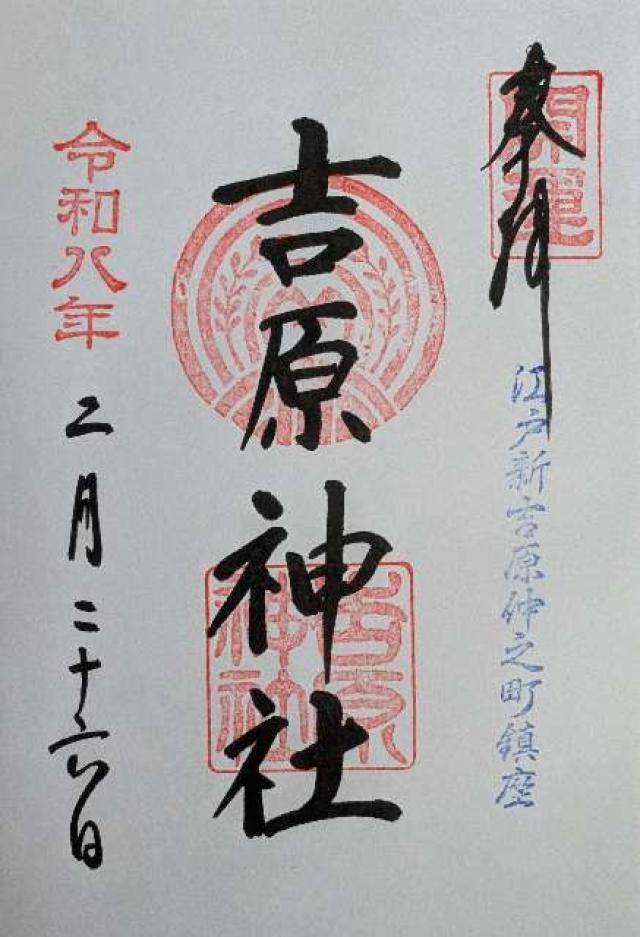 奉拝
開運
江戸新吉原仲之町鎮座
吉原神社
吉原神社
令和八年
二月二十六日